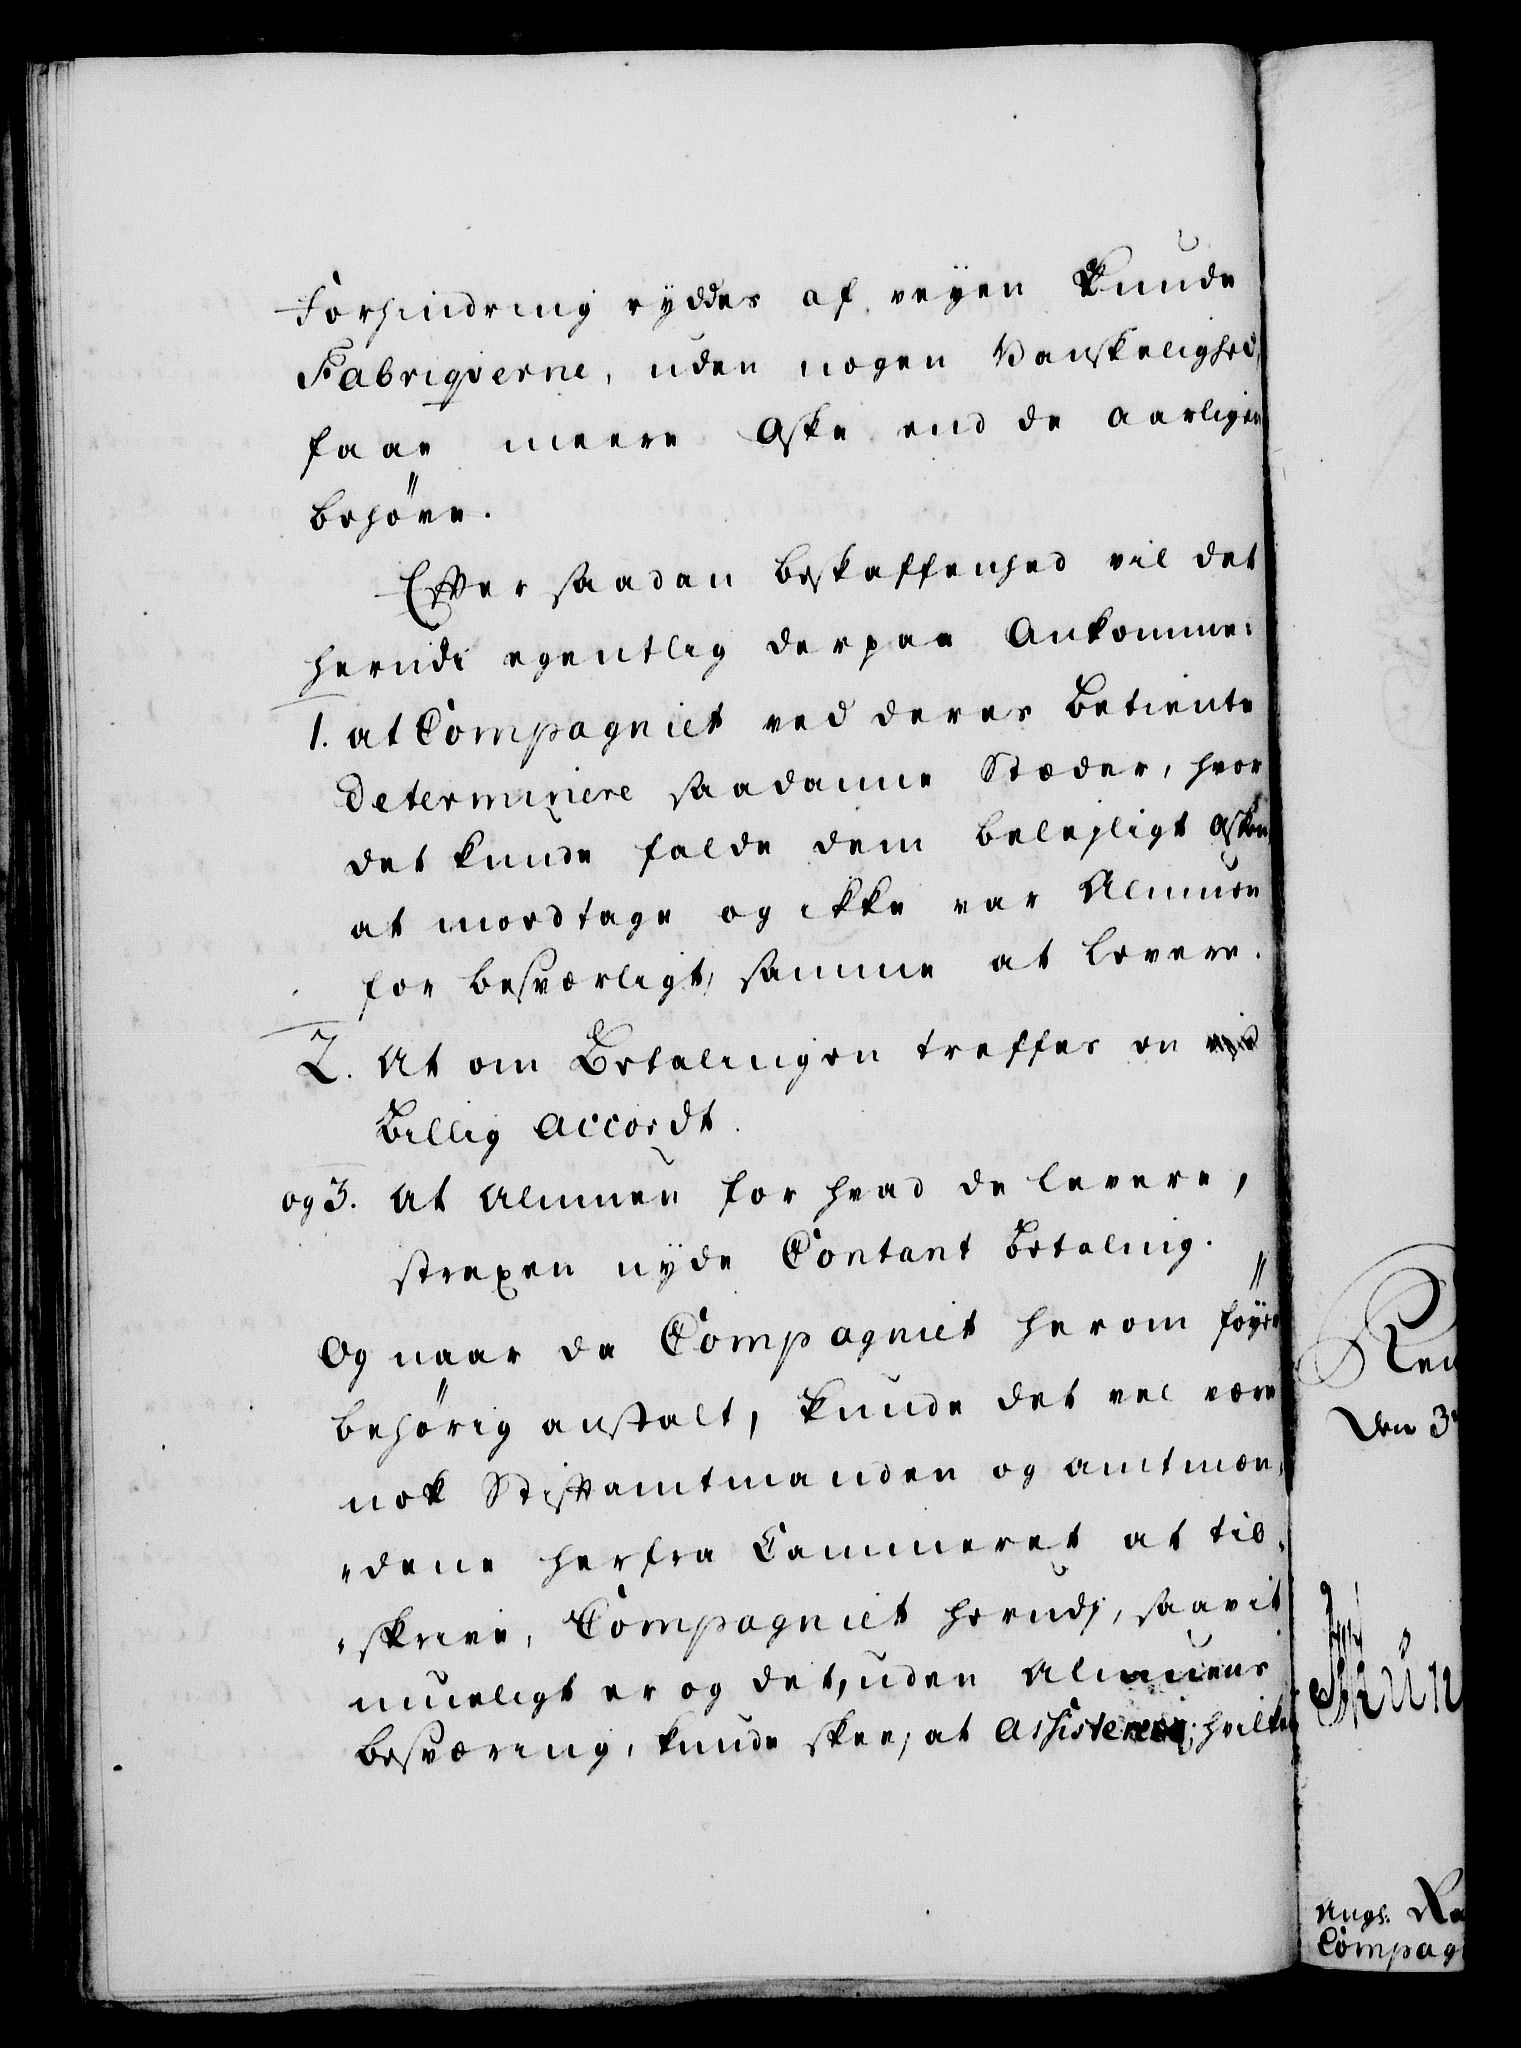 Forhindring ryddes af veyen kunde
Fabriqverne, uden nogen Vanskelighed,
faae meere Aske end de aarligen
behöve.
Efter saadan beskaffenhed vil det
herudi egentlig derpaa Ankomme:
1. at Compagniet ved deres Betiente
determinere saadanne Stæder, hvor
det kunde falde dem belejligt Asken
at modtage og ikke var Almuen
for besværligt, samme at levere.
2. At om Betalingen treffes en
Billig Accordt.
og 3. At Almuen for hvad de levere,
straxen nyde Contant Betaling.
Og naar da Compagniet herom föyer
behörig anstalt, kunde det vel være
nok Stiftamtmanden og amtmæn-
dene herfra Cammeret at til-
skrive, Compagniet herudj, saavit
mueligt er og det, uden Almuens
besværing, kunde skee, at Assistere; hvilket
Den 3
Angl. Re
Compag